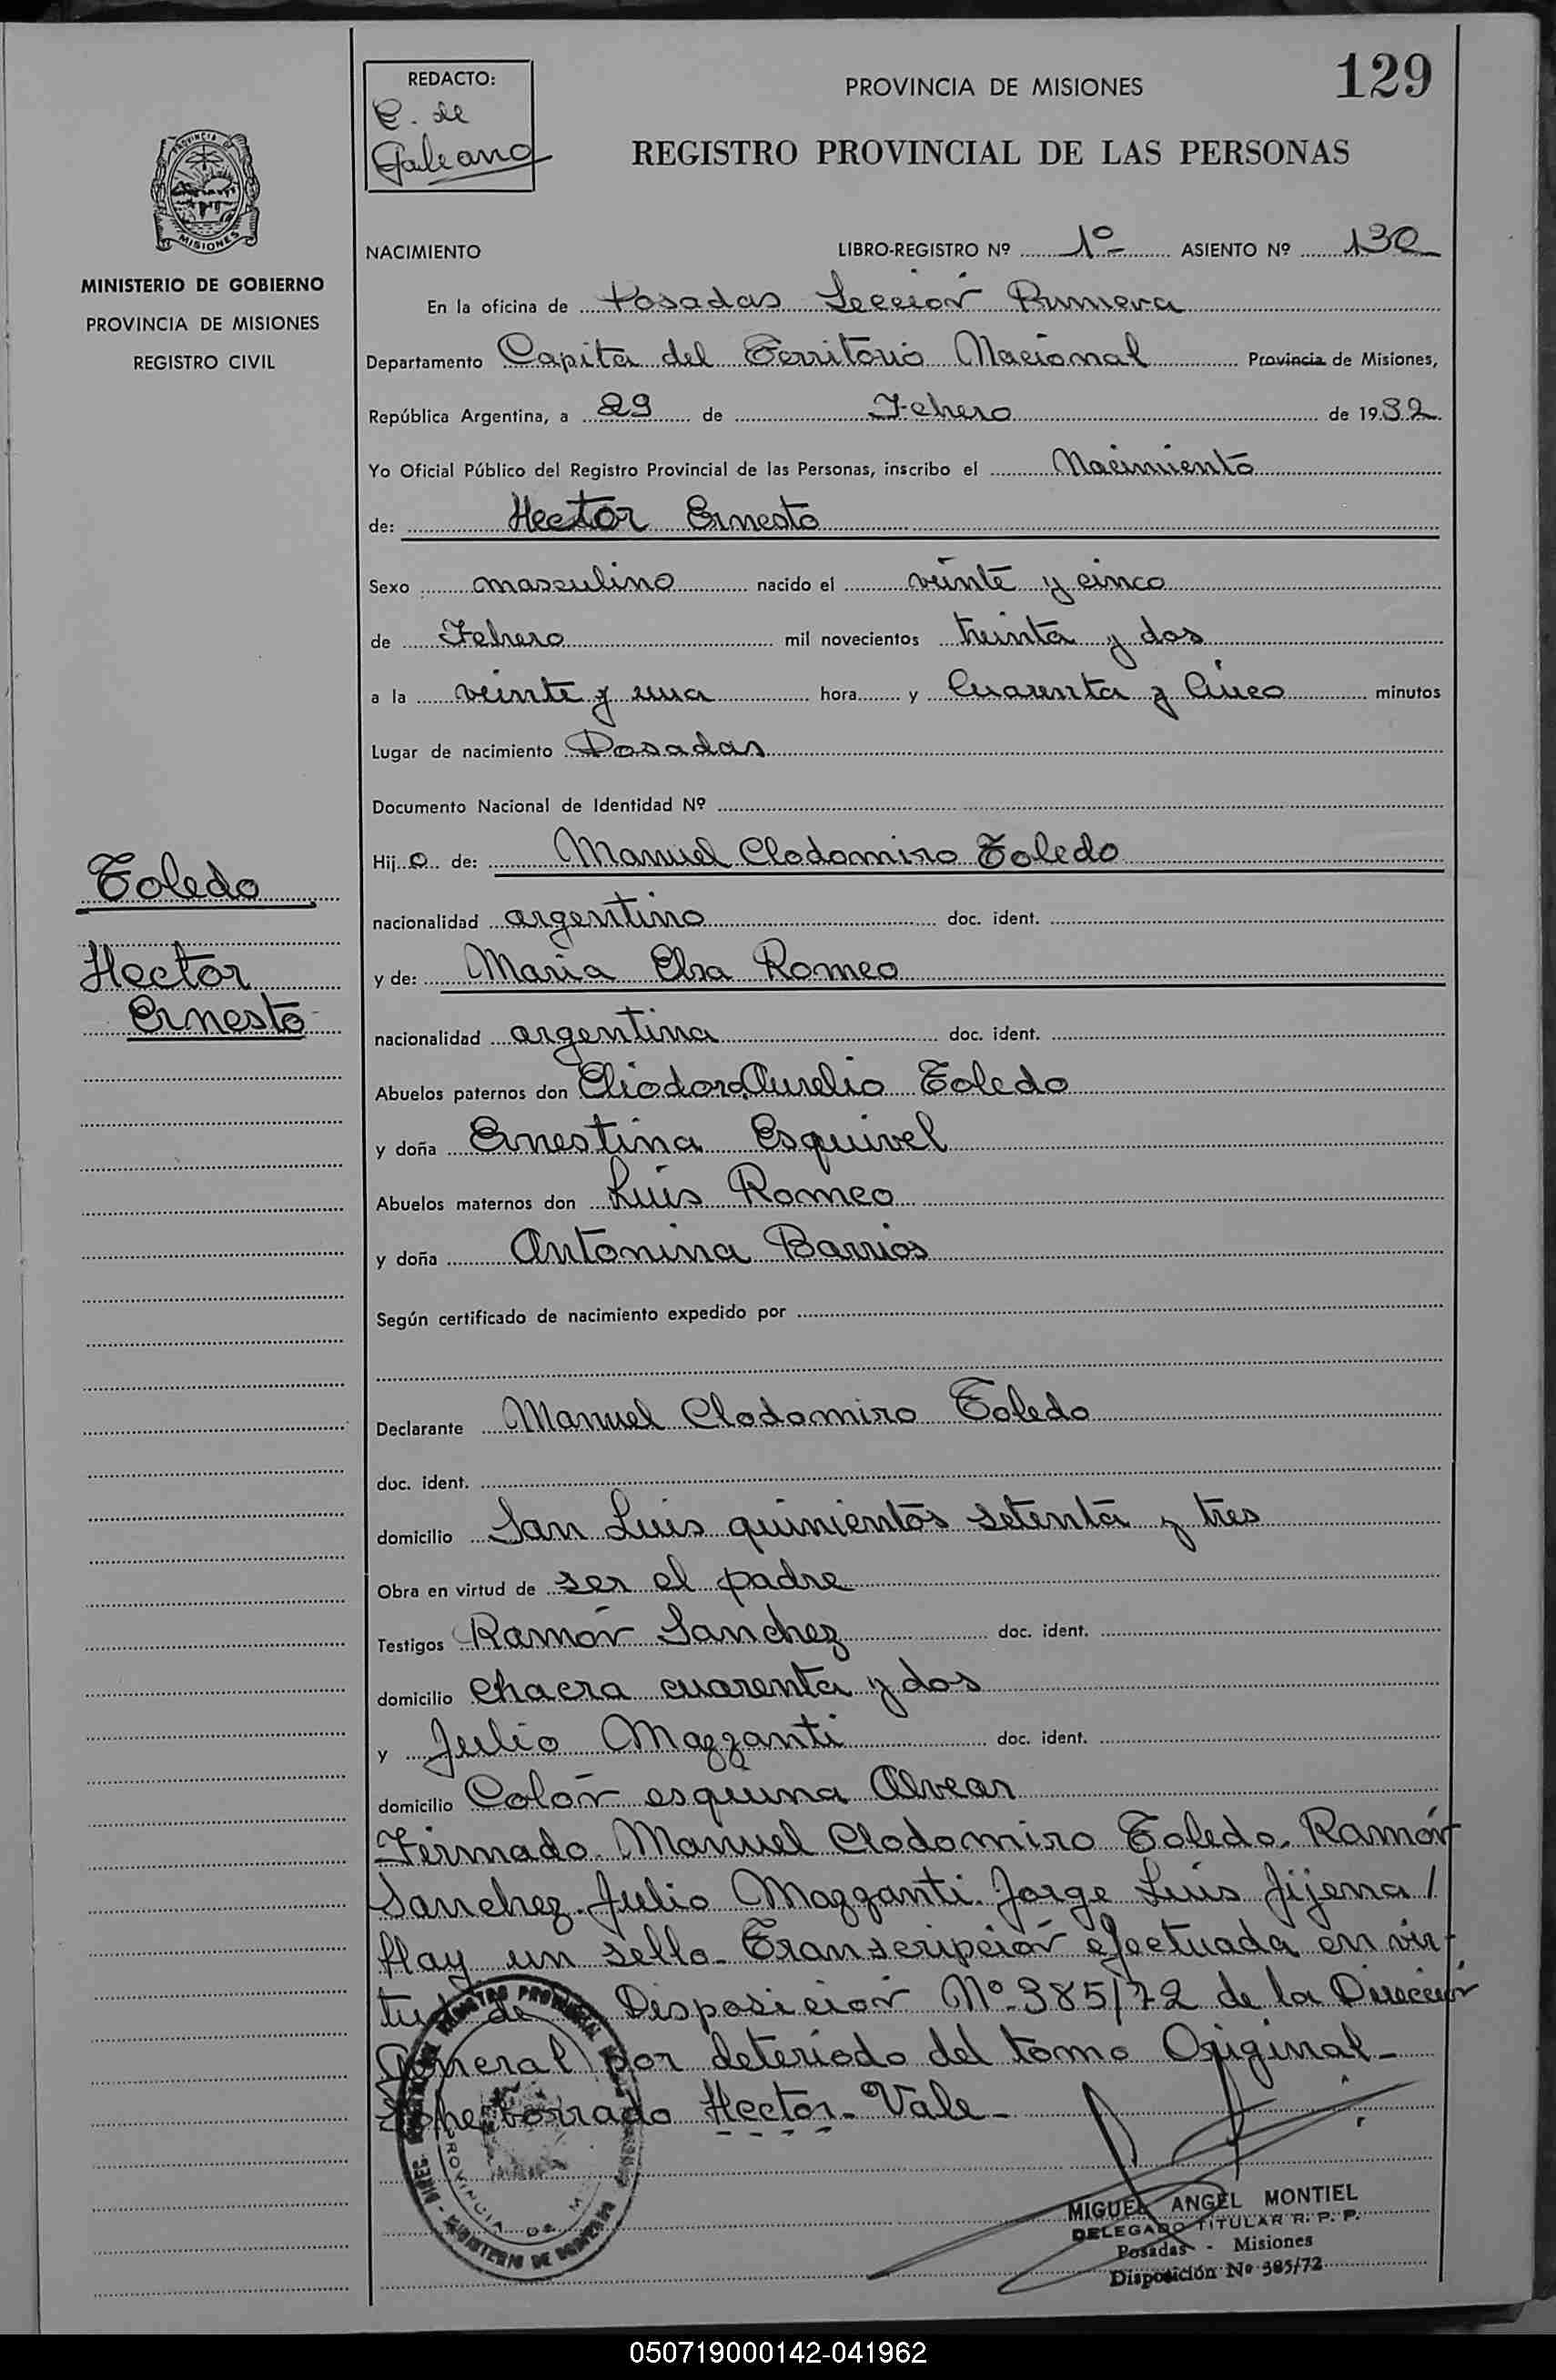 129
REDACTO:
C. de
Galeano
PROVINCIA DE MISIONES
REGISTRO PROVINCIAL DE LAS PERSONAS
PROVINCIA DE
MISIONES
MINISTERIO DE GOBIERNO
PROVINCIA DE MISIONES
REGISTRO CIVIL
NACIMIENTO LIBRO-REGISTRO Nº 1º ASIENTO Nº 130
En la oficina de Posadas Sección Primera
Departamento Capita del Territorio Nacional Provincia de Misiones,
República Argentina, a 29 de Febrero de 1932.
Yo Oficial Público del Registro Provincial de las Personas, inscribo el Nacimiento
de: Hector Ernesto
Sexo masculino nacido el veinte y cinco
de Febrero mil novecientos treinta y dos
a la veinte y una hora y Cuarenta y Cinco minutos
Lugar de nacimiento Posadas
Documento Nacional de Identidad Nº
Hijo de: Manuel Clodomiro Toledo
nacionalidad argentino doc. ident.
y de: Maria Elsa Romeo
nacionalidad argentina doc. ident.
Abuelos paternos don Eliodoro Aurelio Toledo
y doña Ernestina Esquivel
Abuelos maternos don Luis Romeo
y doña Antonina Barrios
Según certificado de nacimiento expedido por
Declarante Manuel Clodomiro Toledo
doc. ident.
domicilio San Luis quinientos setenta y tres
Obra en virtud de ser el padre
Testigos Ramón Sanchez doc. ident.
domicilio chacra cuarenta y dos
y Julio Mazzanti doc. ident.
domicilio Colón esquina Alvear
Firmado. Manuel Clodomiro Toledo. Ramón
Sanchez. Julio Mazzanti. Jorge Luis Jijena/
Hay un sello. Transcripción efectuada en vir-
tud de Disposición Nº 385/72 de la Dirección
General por deteriodo del tomo Original-
Sobre borrado Hector. Vale-
Toledo
Hector
Ernesto
MIGUEL ANGEL MONTIEL
DELEGADO TITULAR R. P. P.
Posadas - Misiones
Disposición Nº 385/72
050719000142-041962